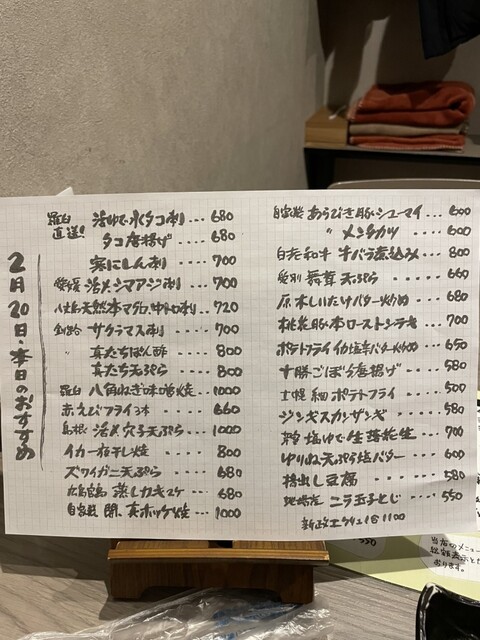 2月20日・本日のおすすめ
羅臼直送!! 活ゆで水タコ刺 ... 680
タコ唐揚げ ... 680
実にしん刺 ... 700
愛媛 活〆シマアジ刺 ... 700
八丈島 天然本マグロ中トロ刺 ... 720
釧路 サクラマス刺 .... 700
〃 真たちぽん酢 .... 800
真たち天ぷら .... 800
羅臼 八角ねぎ味噌焼 ... 1000
赤えびフライ3本 .... 660
島根 活〆穴子天ぷら .... 1000
イカ一夜干し焼 .... 800
ズワイガニ天ぷら .... 680
広島宮島 蒸しカキ3ケ ... 680
自家製 開 真ホッケ焼 ... 1000
自家製 あらびき豚シューマイ ... 600
〃 メンチカツ ... 600
白老和牛 牛バラ煮込み ... 800
愛別 舞茸天ぷら ..... 660
原木しいたけバター炒め 680
豚ローストンテキ ... 700
ポテトフライイカ塩辛バター 650
十勝ごぼう唐揚げ ... 580
士幌 細ポテトフライ ... 500
ジンギスカンザンギ .... 580
塩ゆで生落花生 ... 700
ゆりね天ぷら塩バター ... 600
揚出し豆腐 ..... 580
地場産 ニラ玉子とじ .... 550
新政エクリュ1合1100
550
当店のメニュー
総額表示と
おります。